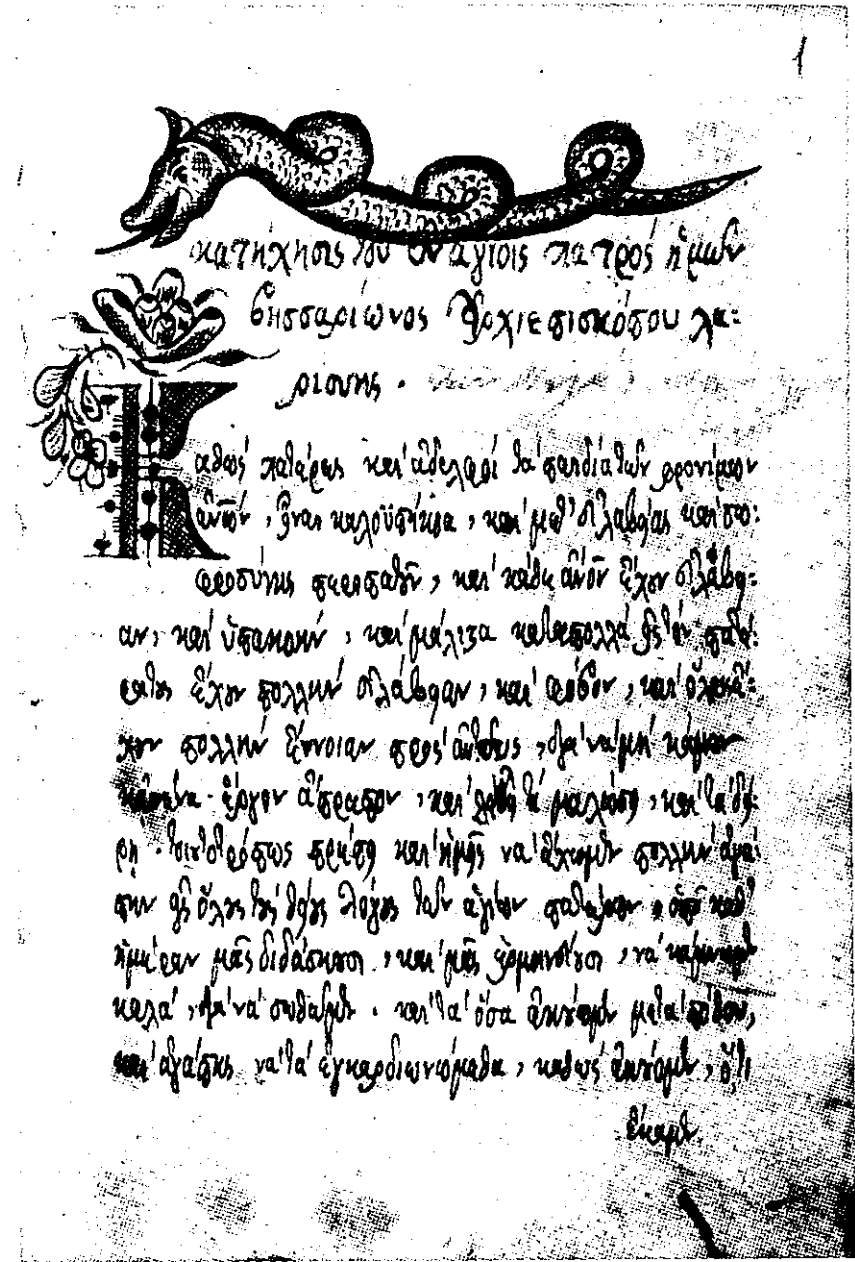 1
κατήχησις τοῦ ἐν ἁγίοις πατρὸς ἡμῶν
βησσαρίωνος ἀρχιεπισκόπου λα:
ρίσσης .
Καθὼς πατέρες καὶ ἀδελφοὶ τὰ παιδία τῶν φρονίμων
καὶ μετ' εὐλαβείας καὶ σω:
φροσύνης περιπατοῦν, καὶ κάθε ἔχουν εὐλάβει:
αν, καὶ ὑπακοὴν, καὶ μάλιστα καταπολλὰ εἰς τὸν πατέ:
ἔχουν πολλὴν εὐλάβειαν, καὶ φόβον, καὶ
χουν πολλὴν ἔννοιαν πρὸς αὐτοὺς, διὰ νὰ μὴ κάμουν
κἀνένα ἔργον ἄπρεπον, καὶ μαλώσῃ, καὶ τὰ δεί:
ρῃ . τοιουτοτρόπως πρέπει καὶ ἡμεῖς νὰ ἔχωμεν πολλὴν ἀγά:
πην εἰς ὅλους τοὺς θείους λόγους τῶν ἁγίων πατέρων, ὁποῦ καθ'
ἡμέραν μᾶς διδάσκουσι, καὶ μᾶς ἑρμηνεύουσι, νὰ κάμνωμεν
καλὰ, διὰ νὰ σωθῶμεν . καὶ τὰ ὅσα ἀκούομεν μετὰ πόθου,
καὶ ἀγάπης νὰ τὰ ἐγκαρδιωνώμεθα, καθὼς ἀκούομεν, ὅτι
ἔκαμεν